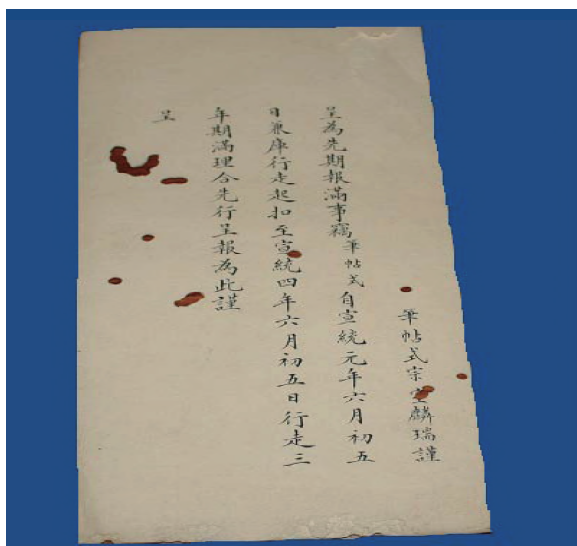 筆帖式宗室麟瑞謹
呈為先期報滿事竊筆帖式自宣統元年六月初五
日兼庫行走起扣至宣統四年六月初五日行走三
年期滿理合先行呈報為此謹
呈